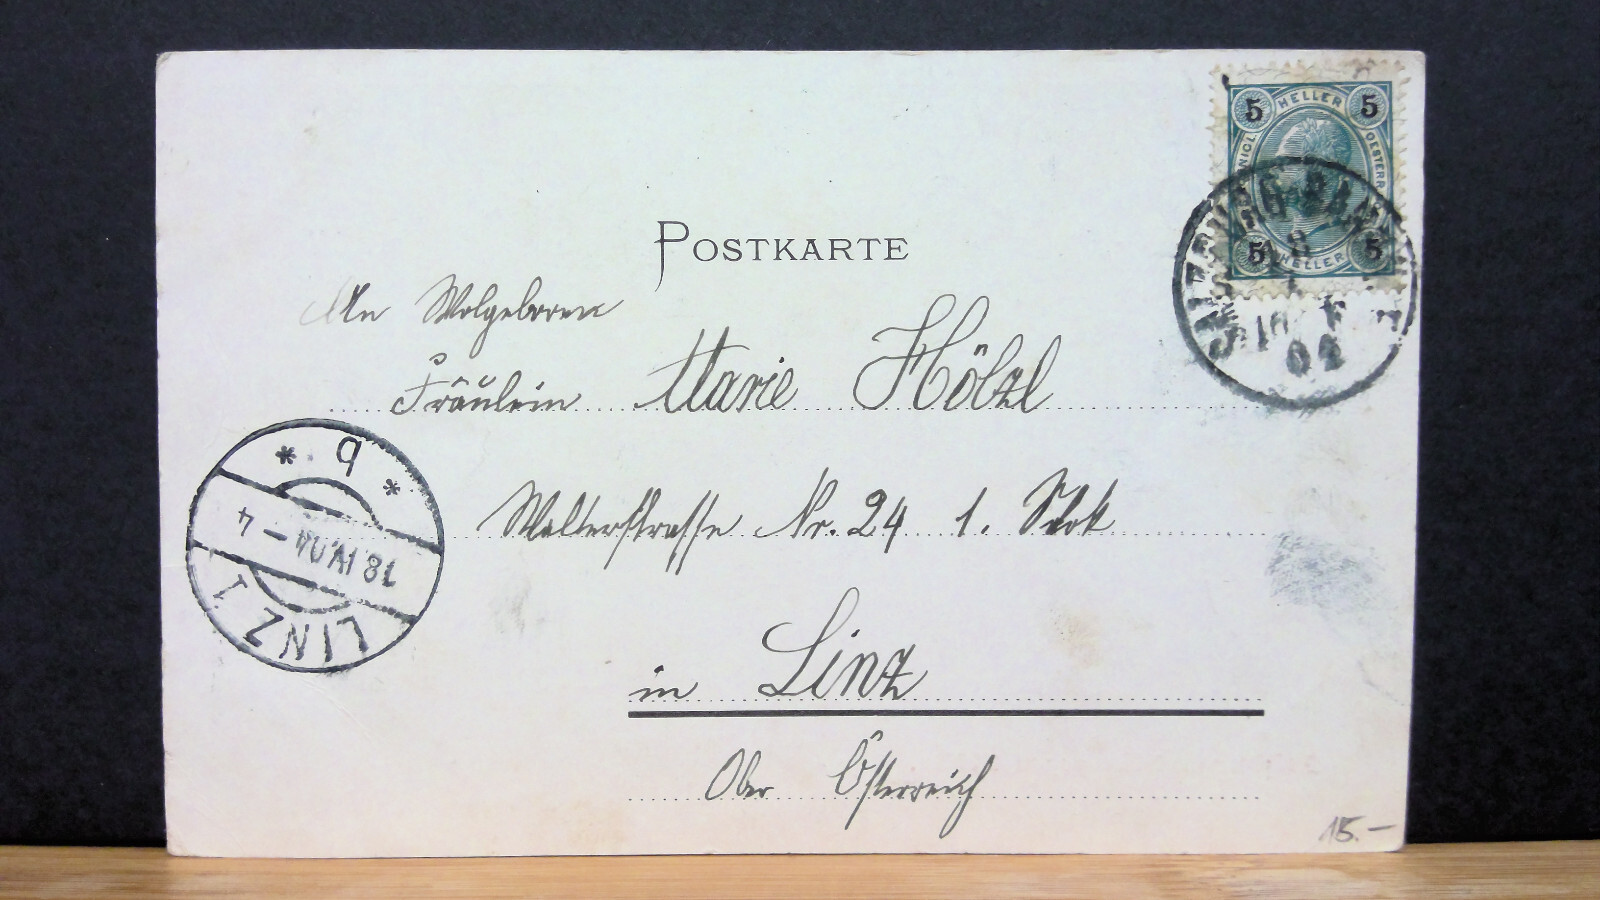 5 HELLER 5
5 HELLER 5
POSTKARTE
An Wolgeboren
Fräulein Marie Hölzl
Walterstrasse Nr. 24 1. Stok
in Linz
Ober Österreich
* 9 *
18.IV.04 – 4
LINZ 1
04
15.–